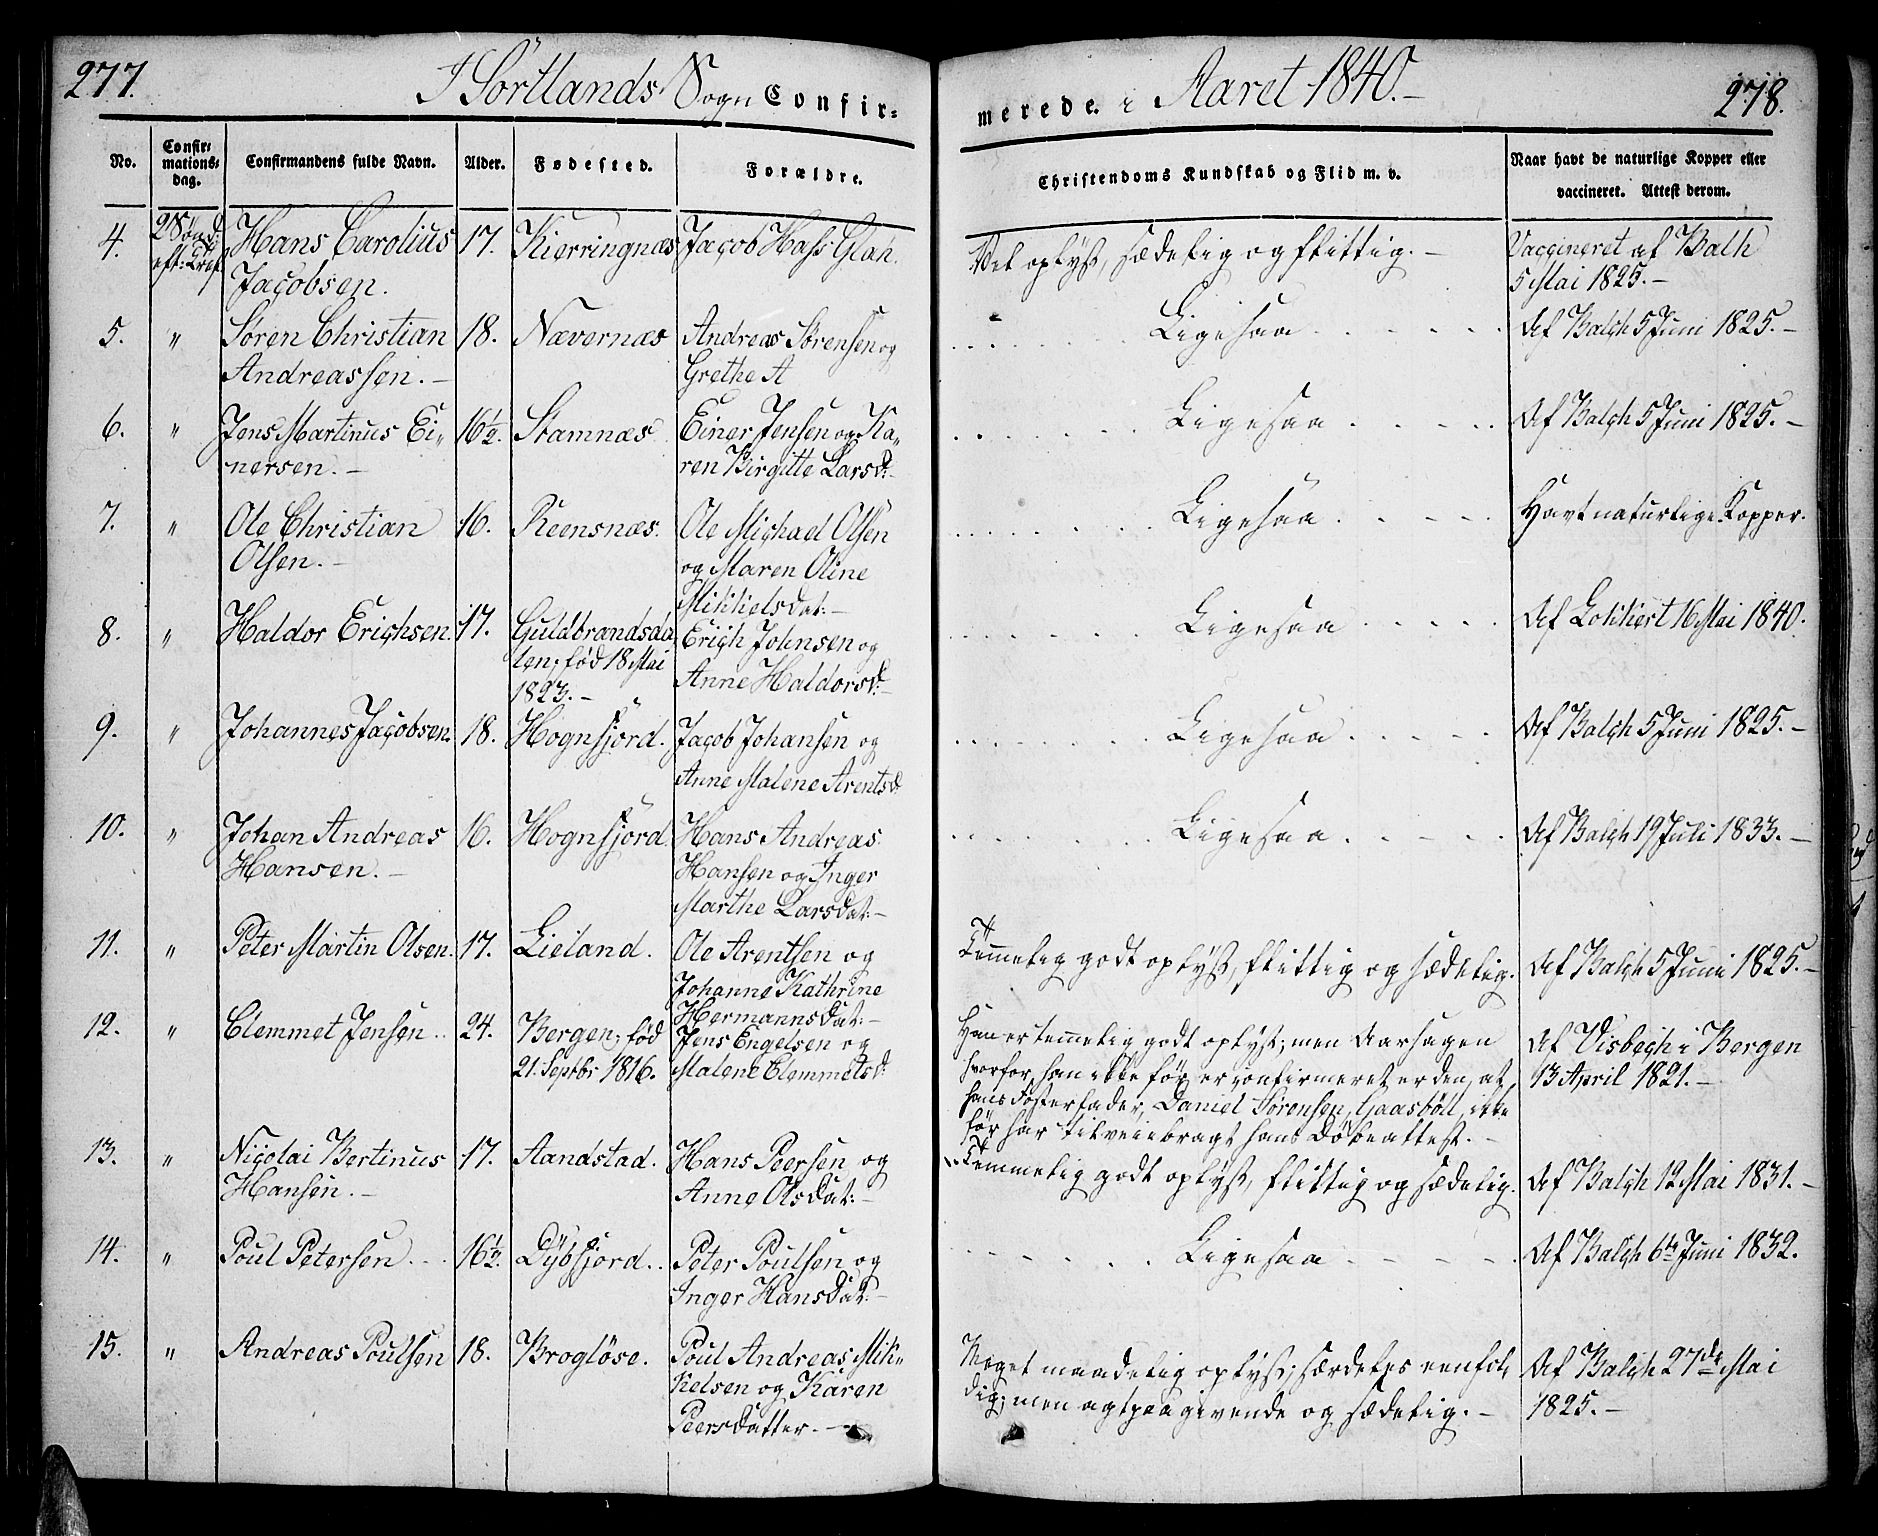 277.
I Sortlands Sogn Confir-
merede i Aaret 1840.-
278.
No.
Confir-
mations-
dag.
Confirmandens fulde Navn.
Alder.
Fødested.
Forældre.
Christendoms Kundskab og Flid m. v.
Naar havt de naturlige Kopper eller
vaccineret. Attest derom.
4. 2 Sönd: Hans Carolius 17. Kierringnæs Jacob Hass Glan. Vel oplyst, sædelig og flittig.- Vaccineret af Balch
eft: Jacobsen. 5 Mai 1825.-
5. " Søren Christian 18. Nævernæs Andreas Sørensen og Ligesaa Af Balch 5 Juni 1825.-
Andreassen.- Grethe A
6. " Jens Martinus Ei- 16½. Stamnæs Einer Jensen og Ka- Ligesaa Af Balch 5 Juni 1825.-
nersen.- ren Birgitte Larsd:-
7. " Ole Christian 16. Reensnæs. Ole Michael Olsen Ligesaa Havt naturlige Kopper.
Olsen.- og Maren Oline
Mikkelsdat:-
8. " Haldor Erichsen. 17. Guldbrandsda- Erich Johnsen og Ligesaa Af Lokkert 16 Mai 1840.
len, fød 18 Mai Anne Haldorsd:-
1823.-
9. " Johannes Jacobsen. 18. Hognfjord. Jacob Johansen og Ligesaa Af Balch 5 Juni 1825.-
Anne Malene Arentsd:
10. " Johan Andreas 16. Hognfjord. Hans Andreas Ligesaa Af Balch 19 Juli 1833.-
Hansen.- Hansen og Inger
Marthe Larsdat:-
11. " Peter Martin Olsen. 17. Lieland. Ole Arentsen og Temmelig godt oplyst, flittig og sædelig. Af Balch 5 Juni 1825.-
Johanne Kathrine
Hermannsdat:-
12. " Clemmet Jensen.. 24. Bergen, fød Jens Engelsen og Han er temmelig godt oplyst; men Aarsagen Af Visbech i Bergen
21. Septbr 1816. Malene Clemmetsd: hvorfor han ikke før er confirmeret er den, at 13 April 1821.-
hans Fosterfader, Daniel Sørensen, Gaasböll, ikke
før har tilveiebragt hans Döbeattest.-
13. " Nicolai Bertinus 17. Aandstad. Hans Peersen og Temmelig godt oplyst, flittig og sædelig. Af Balch 12 Mai 1831.-
Hansen.- Anne Olsdat:-
14. " Poul Petersen... 16½. Dybfjord.. Peter Poulsen og Ligesaa Af Balch 6te Juni 1832.
Inger Hansdat:-
15. " Andreas Poulsen 18. Brogløse. Poul Andreas Mik- Meget maadelig oplyst; særdeles eenfol- Af Balch 27de Mai
kelsen og Karen dig; men agtpaagivende og sædelig.- 1825.-
Peersdatter.-